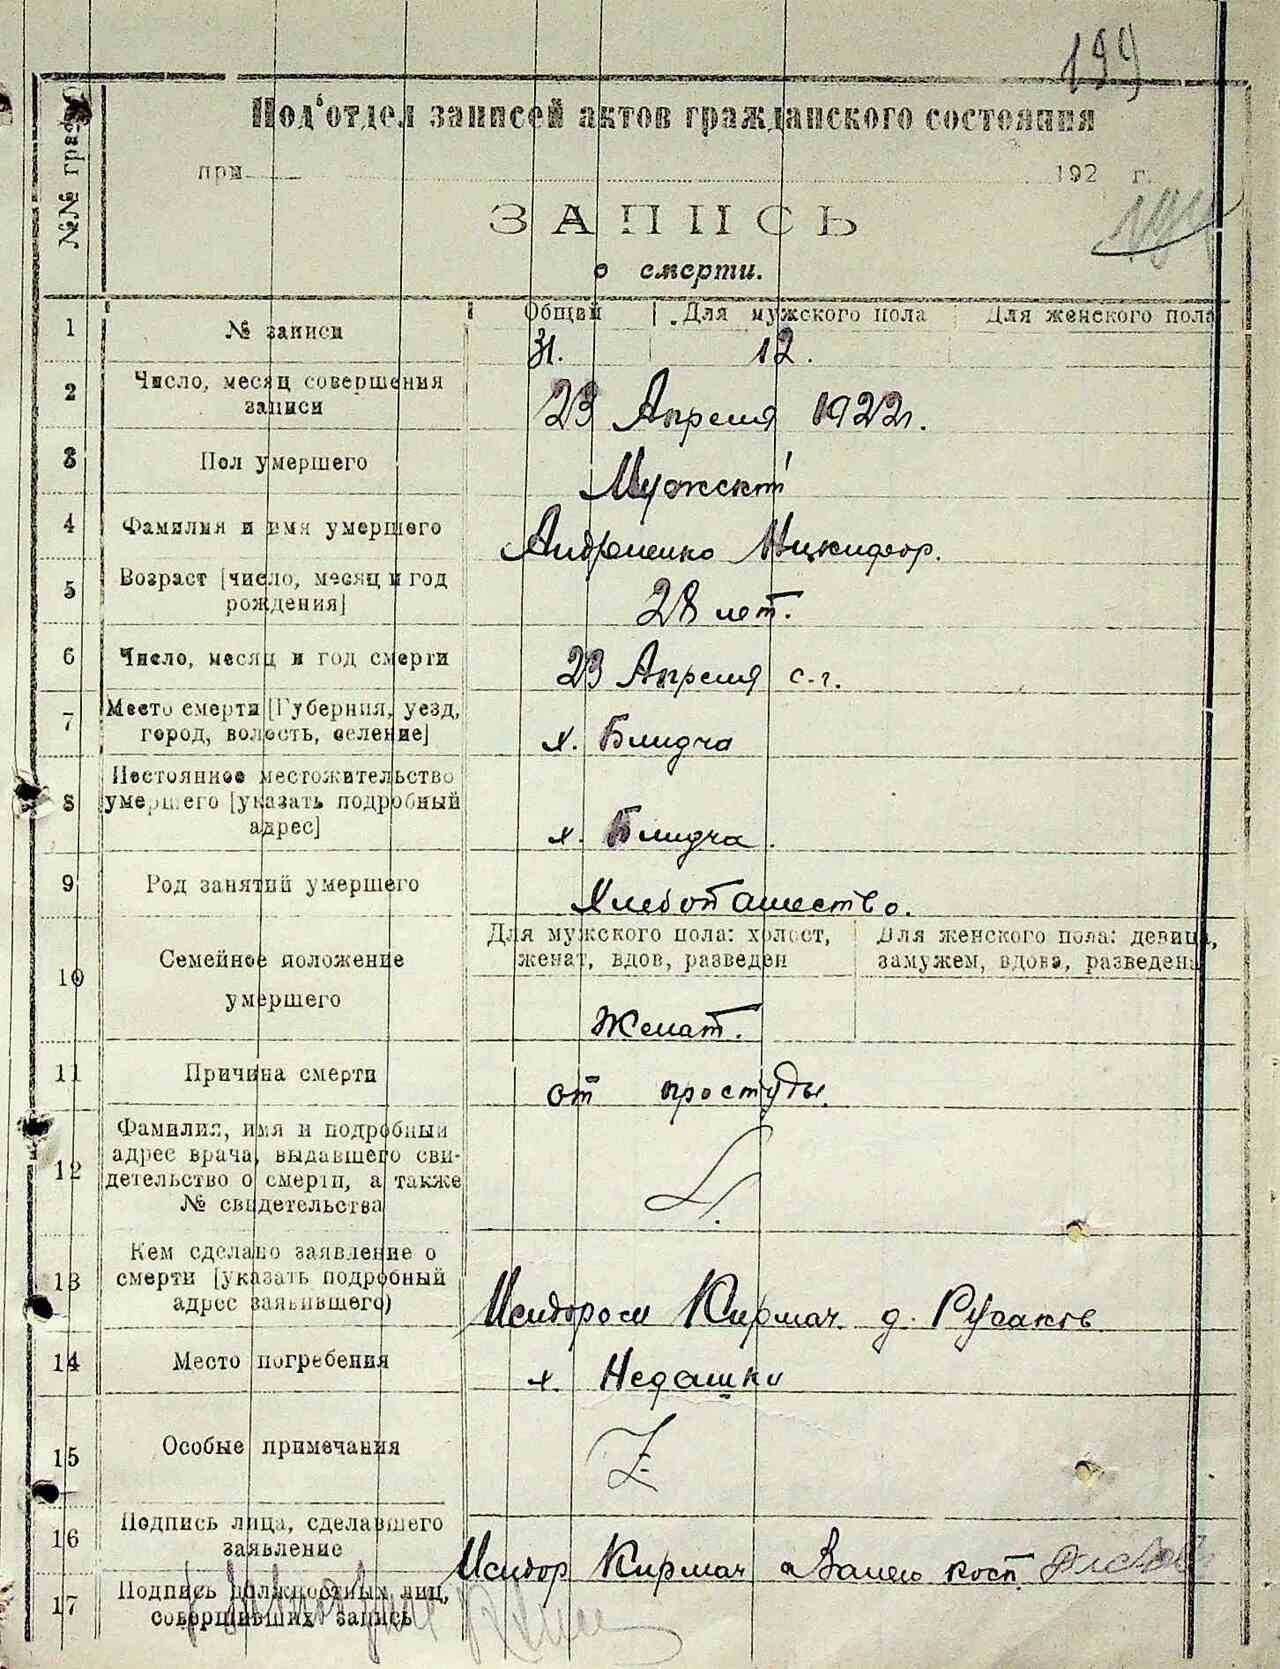 199
Под'отдел записей актов гражданского состояния
при 192 г.
ЗАПИСЬ
о смерти.
№№ граф
1 № записи
Общий Для мужского пола Для женского пола
31. 12.
2 Число, месяц совершения
записи
23 Апреля 1922 г.
3 Пол умершего
Мужской
4 Фамилия и имя умершего
Андреенко Никифор.
5 Возраст [число, месяц и год
рождения]
28 лет.
6 Число, месяц и год смерти
23 Апреля с.г.
7 Место смерти [Губерния, уезд,
город, волость, селение]
х. Блидча
8 Постоянное местожительство
умершего [указать подробный
адрес]
х. Блидча.
9 Род занятий умершего
Хлебопашество.
10 Семейное положение
умершего
Для мужского пола: холост,
женат, вдов, разведен
Для женского пола: девица,
замужем, вдова, разведена
Женат.
11 Причина смерти
от простуды.
12 Фамилия, имя и подробный
адрес врача, выдавшего сви-
детельство о смерти, а также
№ свидетельства
13 Кем сделано заявление о
смерти [указать подробный
адрес заявившего)
Исидором Кирмач д. Русаков
14 Место погребения
х. Недашки
15 Особые примечания
16 Подпись лица, сделавшего
заявление
Исидор Кирмач а
17 Подпись должностных лиц,
совершивших запись